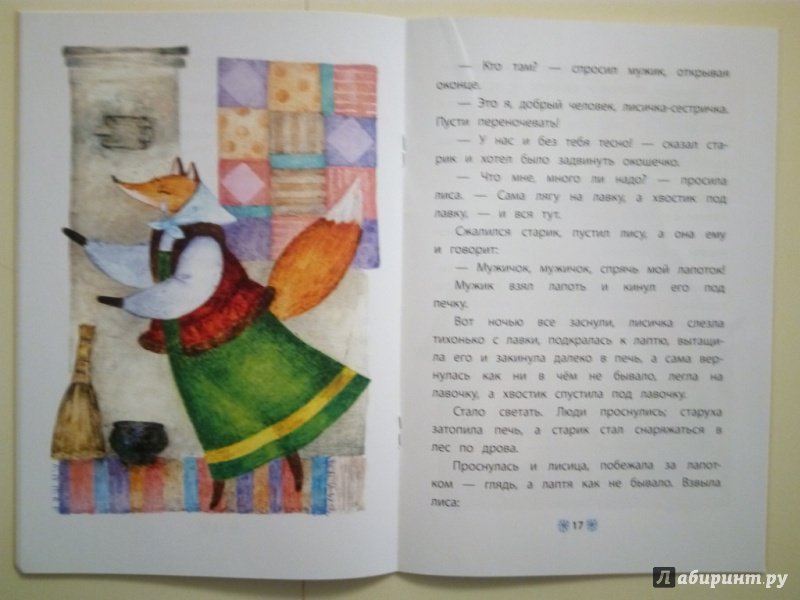 — Кто там? — спросил мужик, открывая
оконце.
— Это я, добрый человек, лисичка-сестричка.
Пусти переночевать!
— У нас и без тебя тесно! — сказал ста-
рик и хотел было задвинуть окошечко.
— Что мне, много ли надо? — просила
лиса. — Сама лягу на лавку, а хвостик под
лавку, — и вся тут.
Сжалился старик, пустил лису, а она ему
и говорит:
— Мужичок, мужичок, спрячь мой лапоток!
Мужик взял лапоть и кинул его под
печку.
Вот ночью все заснули, лисичка слезла
тихонько с лавки, подкралась к лаптю, вытащи-
ла его и закинула далеко в печь, а сама вер-
нулась как ни в чём не бывало, легла на
лавочку, а хвостик спустила под лавочку.
Стало светать. Люди проснулись; старуха
затопила печь, а старик стал снаряжаться в
лес по дрова.
Проснулась и лисица, побежала за лапот-
ком — глядь, а лаптя как не бывало. Взвыла
лиса:
17
Лабиринт.ру